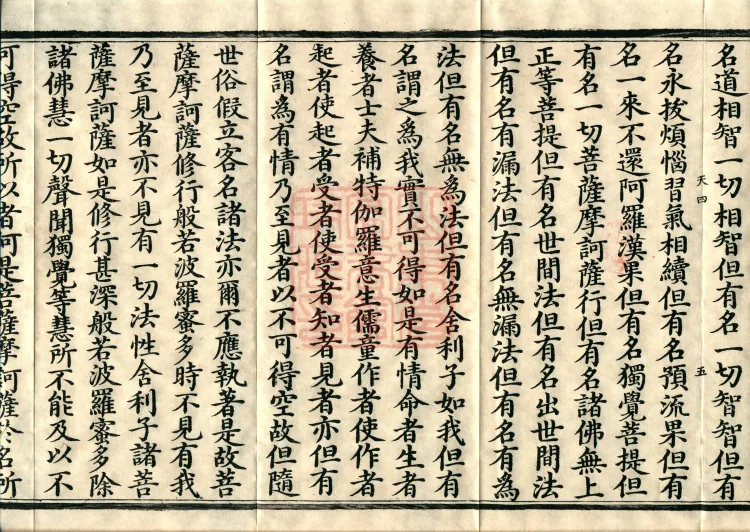 名道相智一切相智但有名一切智智但有
天四 五
名永拔煩惱習氣相續但有名預流果但有
名一來不還阿羅漢果但有名獨覺菩提但
有名一切菩薩摩訶薩行但有名諸佛無上
正等菩提但有名世間法但有名出世間法
但有名有漏法但有名無漏法但有名有為
法但有名無為法但有名舍利子如我但有
名謂之為我實不可得如是有情命者生者
養者士夫補特伽羅意生儒童作者使作者
起者使起者受者使受者知者見者亦但有
名謂為有情乃至見者以不可得空故但隨
世俗假立客名諸法亦爾不應執著是故菩
薩摩訶薩修行般若波羅蜜多時不見有我
乃至見者亦不見有一切法性舍利子諸菩
薩摩訶薩如是修行甚深般若波羅蜜多除
諸佛慧一切聲聞獨覺等慧所不能及以不
可得空故所以者何是菩薩摩訶薩於名所